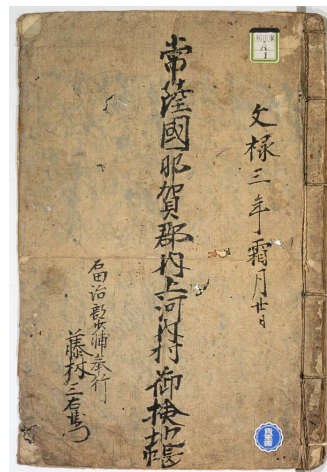 文禄三年霜月廿日
常陸國那賀郡内上河内村御検地帳
石田治部少輔奉行
藤林三右衛門
貴重書